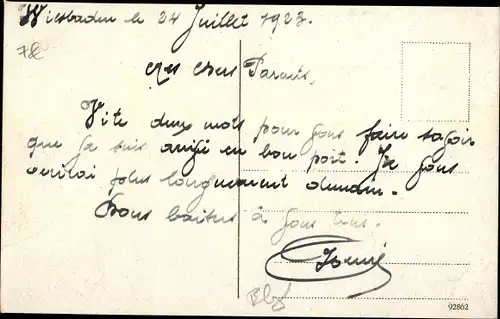 Wiesbaden le 24 Juillet 1923.
Mes chers Parents,
Vite deux mots pour vous faire savoir
que je suis arrivé en bon port. Je vous
écrirai plus longuement demain.
Bons baisers à vous tous.
92862